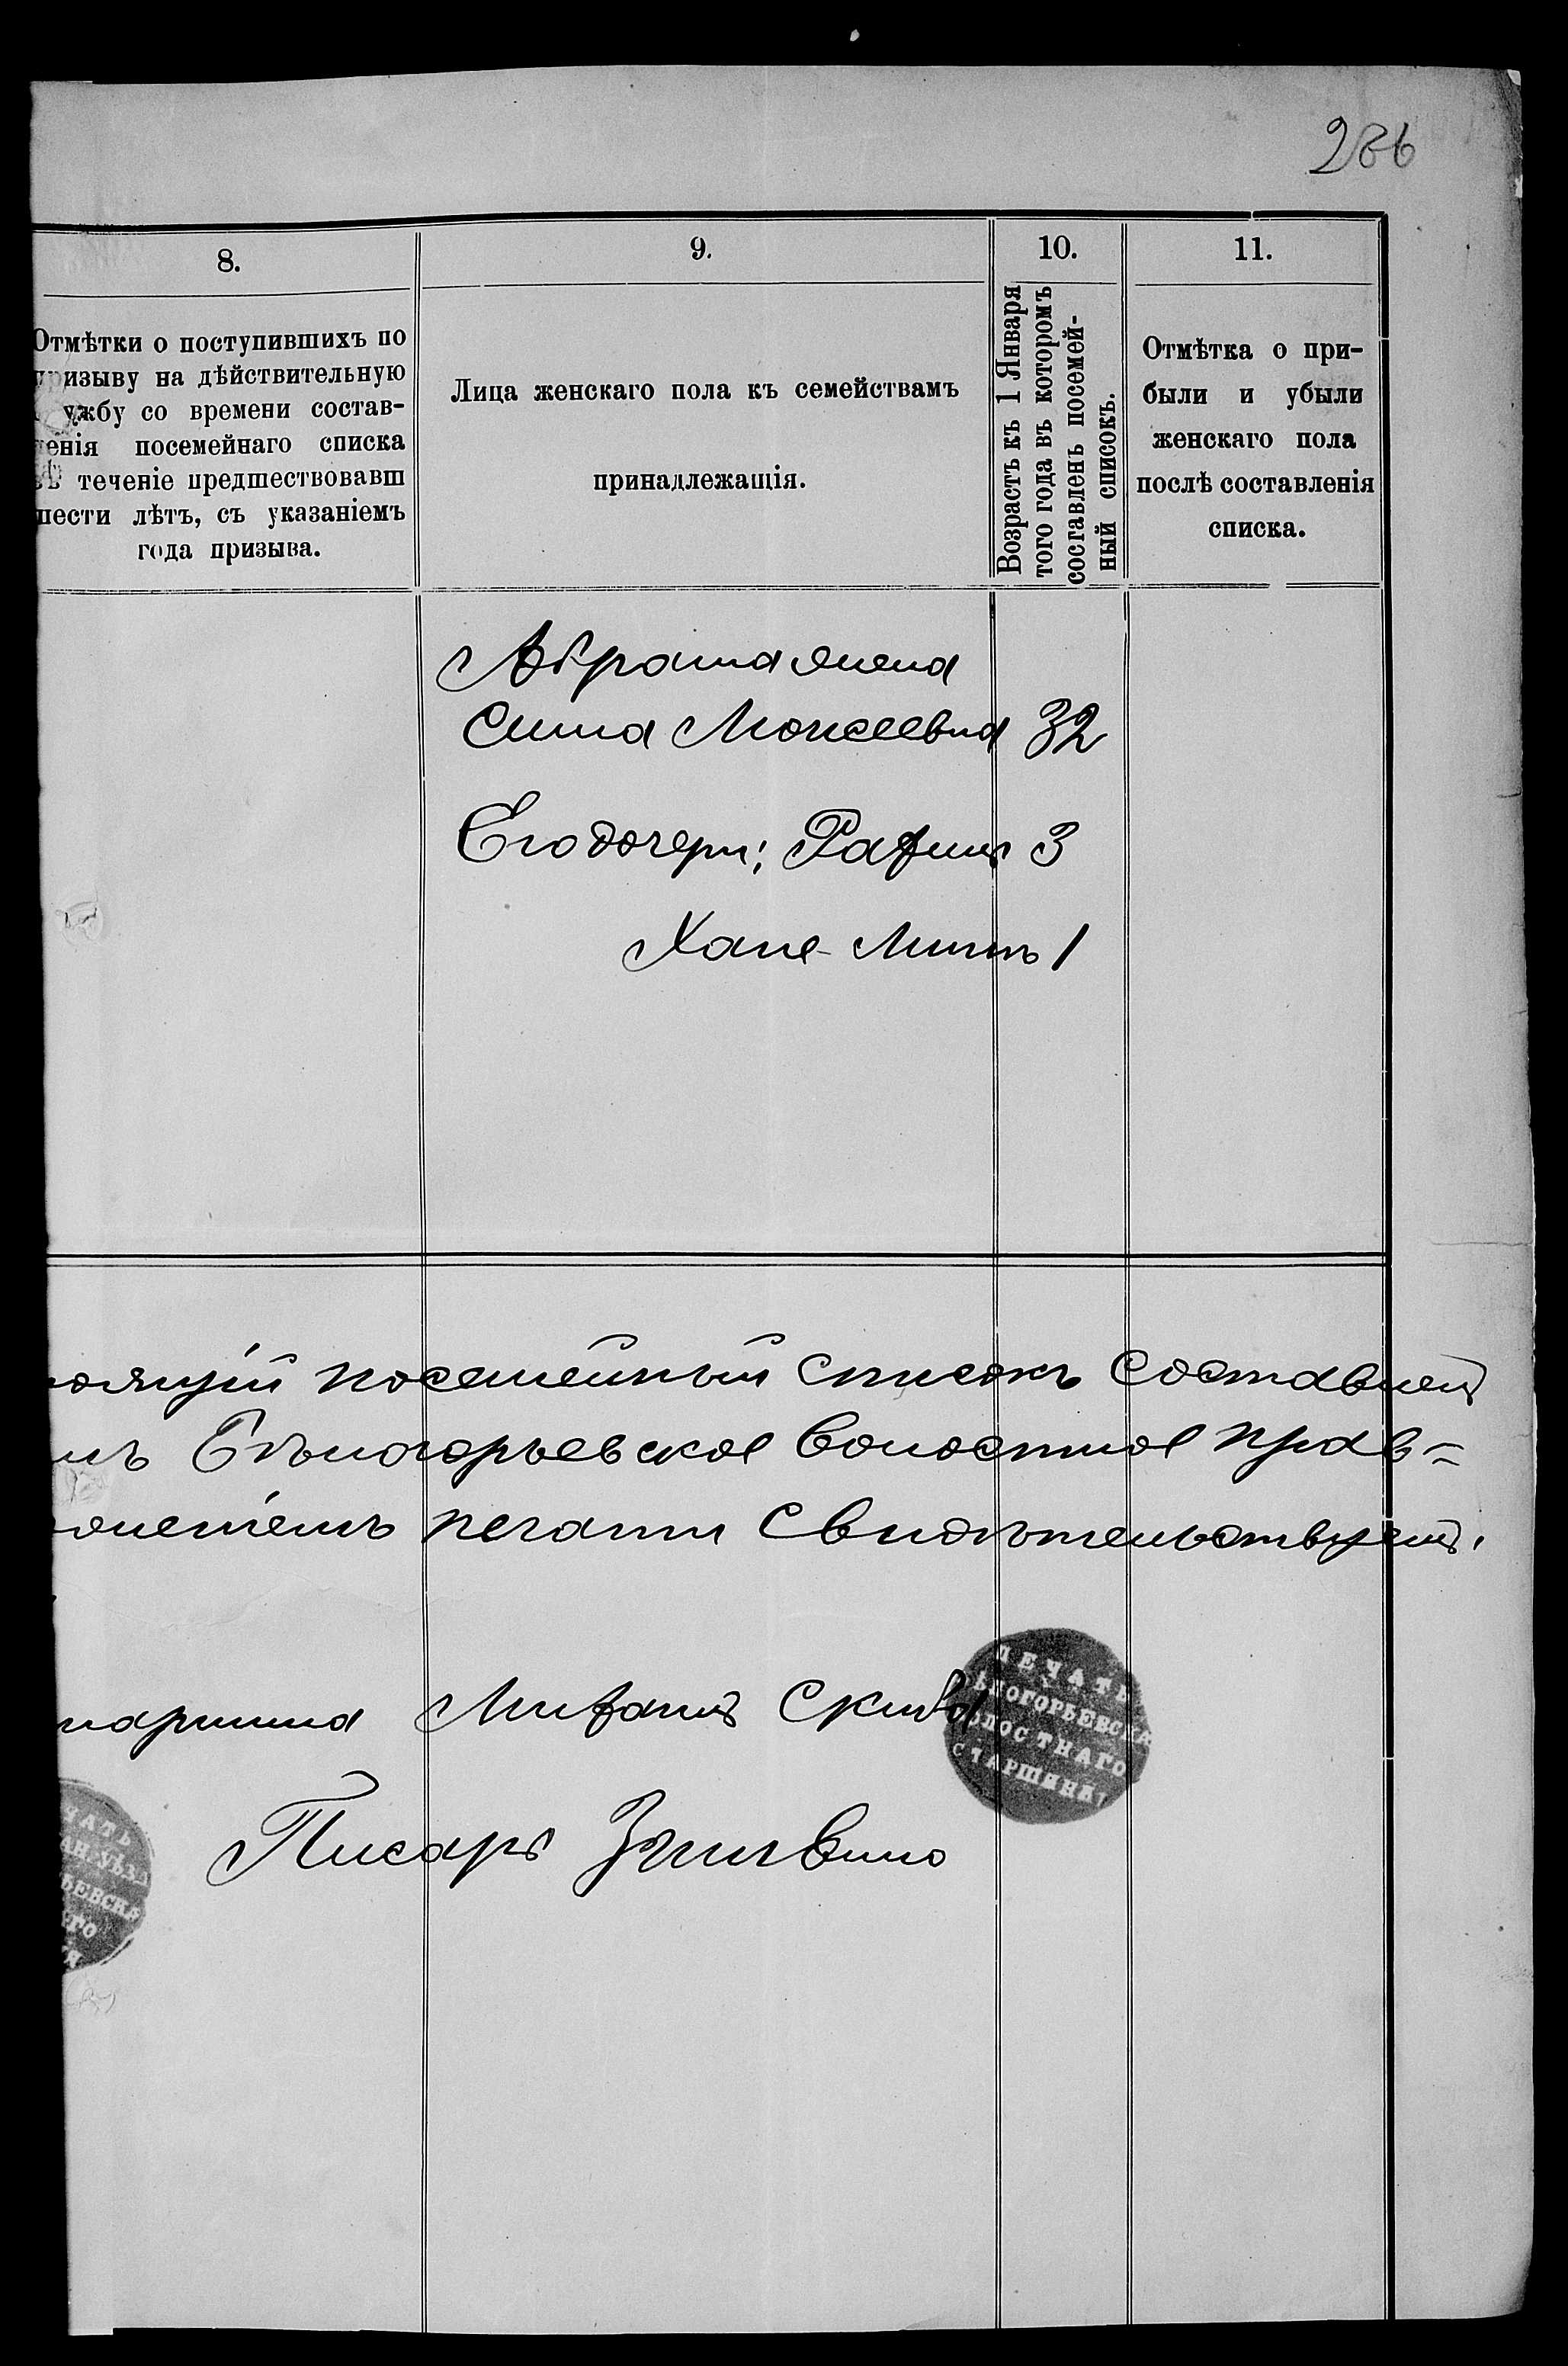 286
8.
Отмѣтки о поступившихъ по
призыву на дѣйствительную
ужбу со времени состав-
ленія посемейнаго списка
въ теченіе предшествовавш
шести лѣтъ, съ указаніемъ
года призыва.
9.
Лица женскаго пола къ семействамъ
принадлежащія.
10.
Возрастъ къ 1 Января
того года въ которомъ
составленъ посемей-
ный списокъ.
11.
Отмѣтка о при-
были и убыли
женскаго пола
послѣ составленія
списка.
Абрама жена
Сима Моисеевна 32
Его дочери: 3
Хане 1
оящій посемейный списокъ составлен
мъ Бѣлогорьевское Волостное прав=
оженіемъ печати свидѣтельствуетъ.
таршина Митрант Скиба
Писарь
ПЕЧАТЬ
БѢЛОГОРЬЕВСКА
ОЛОСТНАГО
СТАРШИНЫ
ЧАТЬ
АН. УѢЗД
ЬЕВСКА
АГО
ІЯ